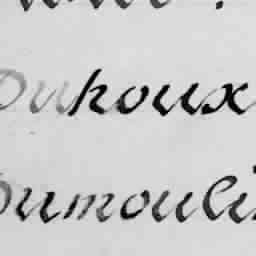 Duhoux
Dumouli